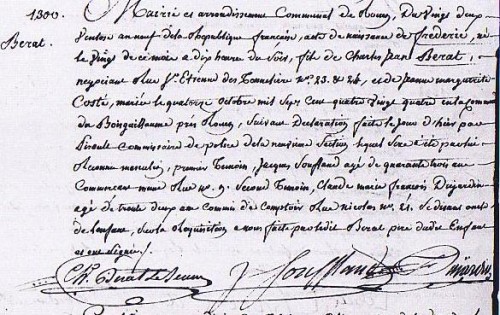 1300.
Berat
Mairie et arrondissement Communal de Rouen, Du Vingt deux
Ventose an neuf de la République française, acte de naissance de frédéric, né
le Vingt de ce mois a dix heures du Soir, fils de Charles Jean Berat,
négociant Rue St. Etienne des Tonneliers Nos. 23. & 24, et de Jeanne marguerite
Coste, mariés le quatorze octobre mil Sept Cent quatre Vingt quatre en la commune
du Boisguillaume près Rouen, Suivant Déclaration faite le Jour d'hier par
Commissaire de police de la neuvieme Section lequel sexe a été par lui
Reconnu masculin; premier Temoin, Jacques Souffland agé de quarante trois ans
Commerçant meme Rue No. 9. Second Temoin, Claude marie françois Dujardin
agé de trente deux ans Commis de Comptoir Rue nicolas No. 21.
de l'enfant, Sur la Requisition a nous faite par ledit Berat père dudit Enfant
et ont Signé./.
Ch. Berat
J. Souffland Dujardin